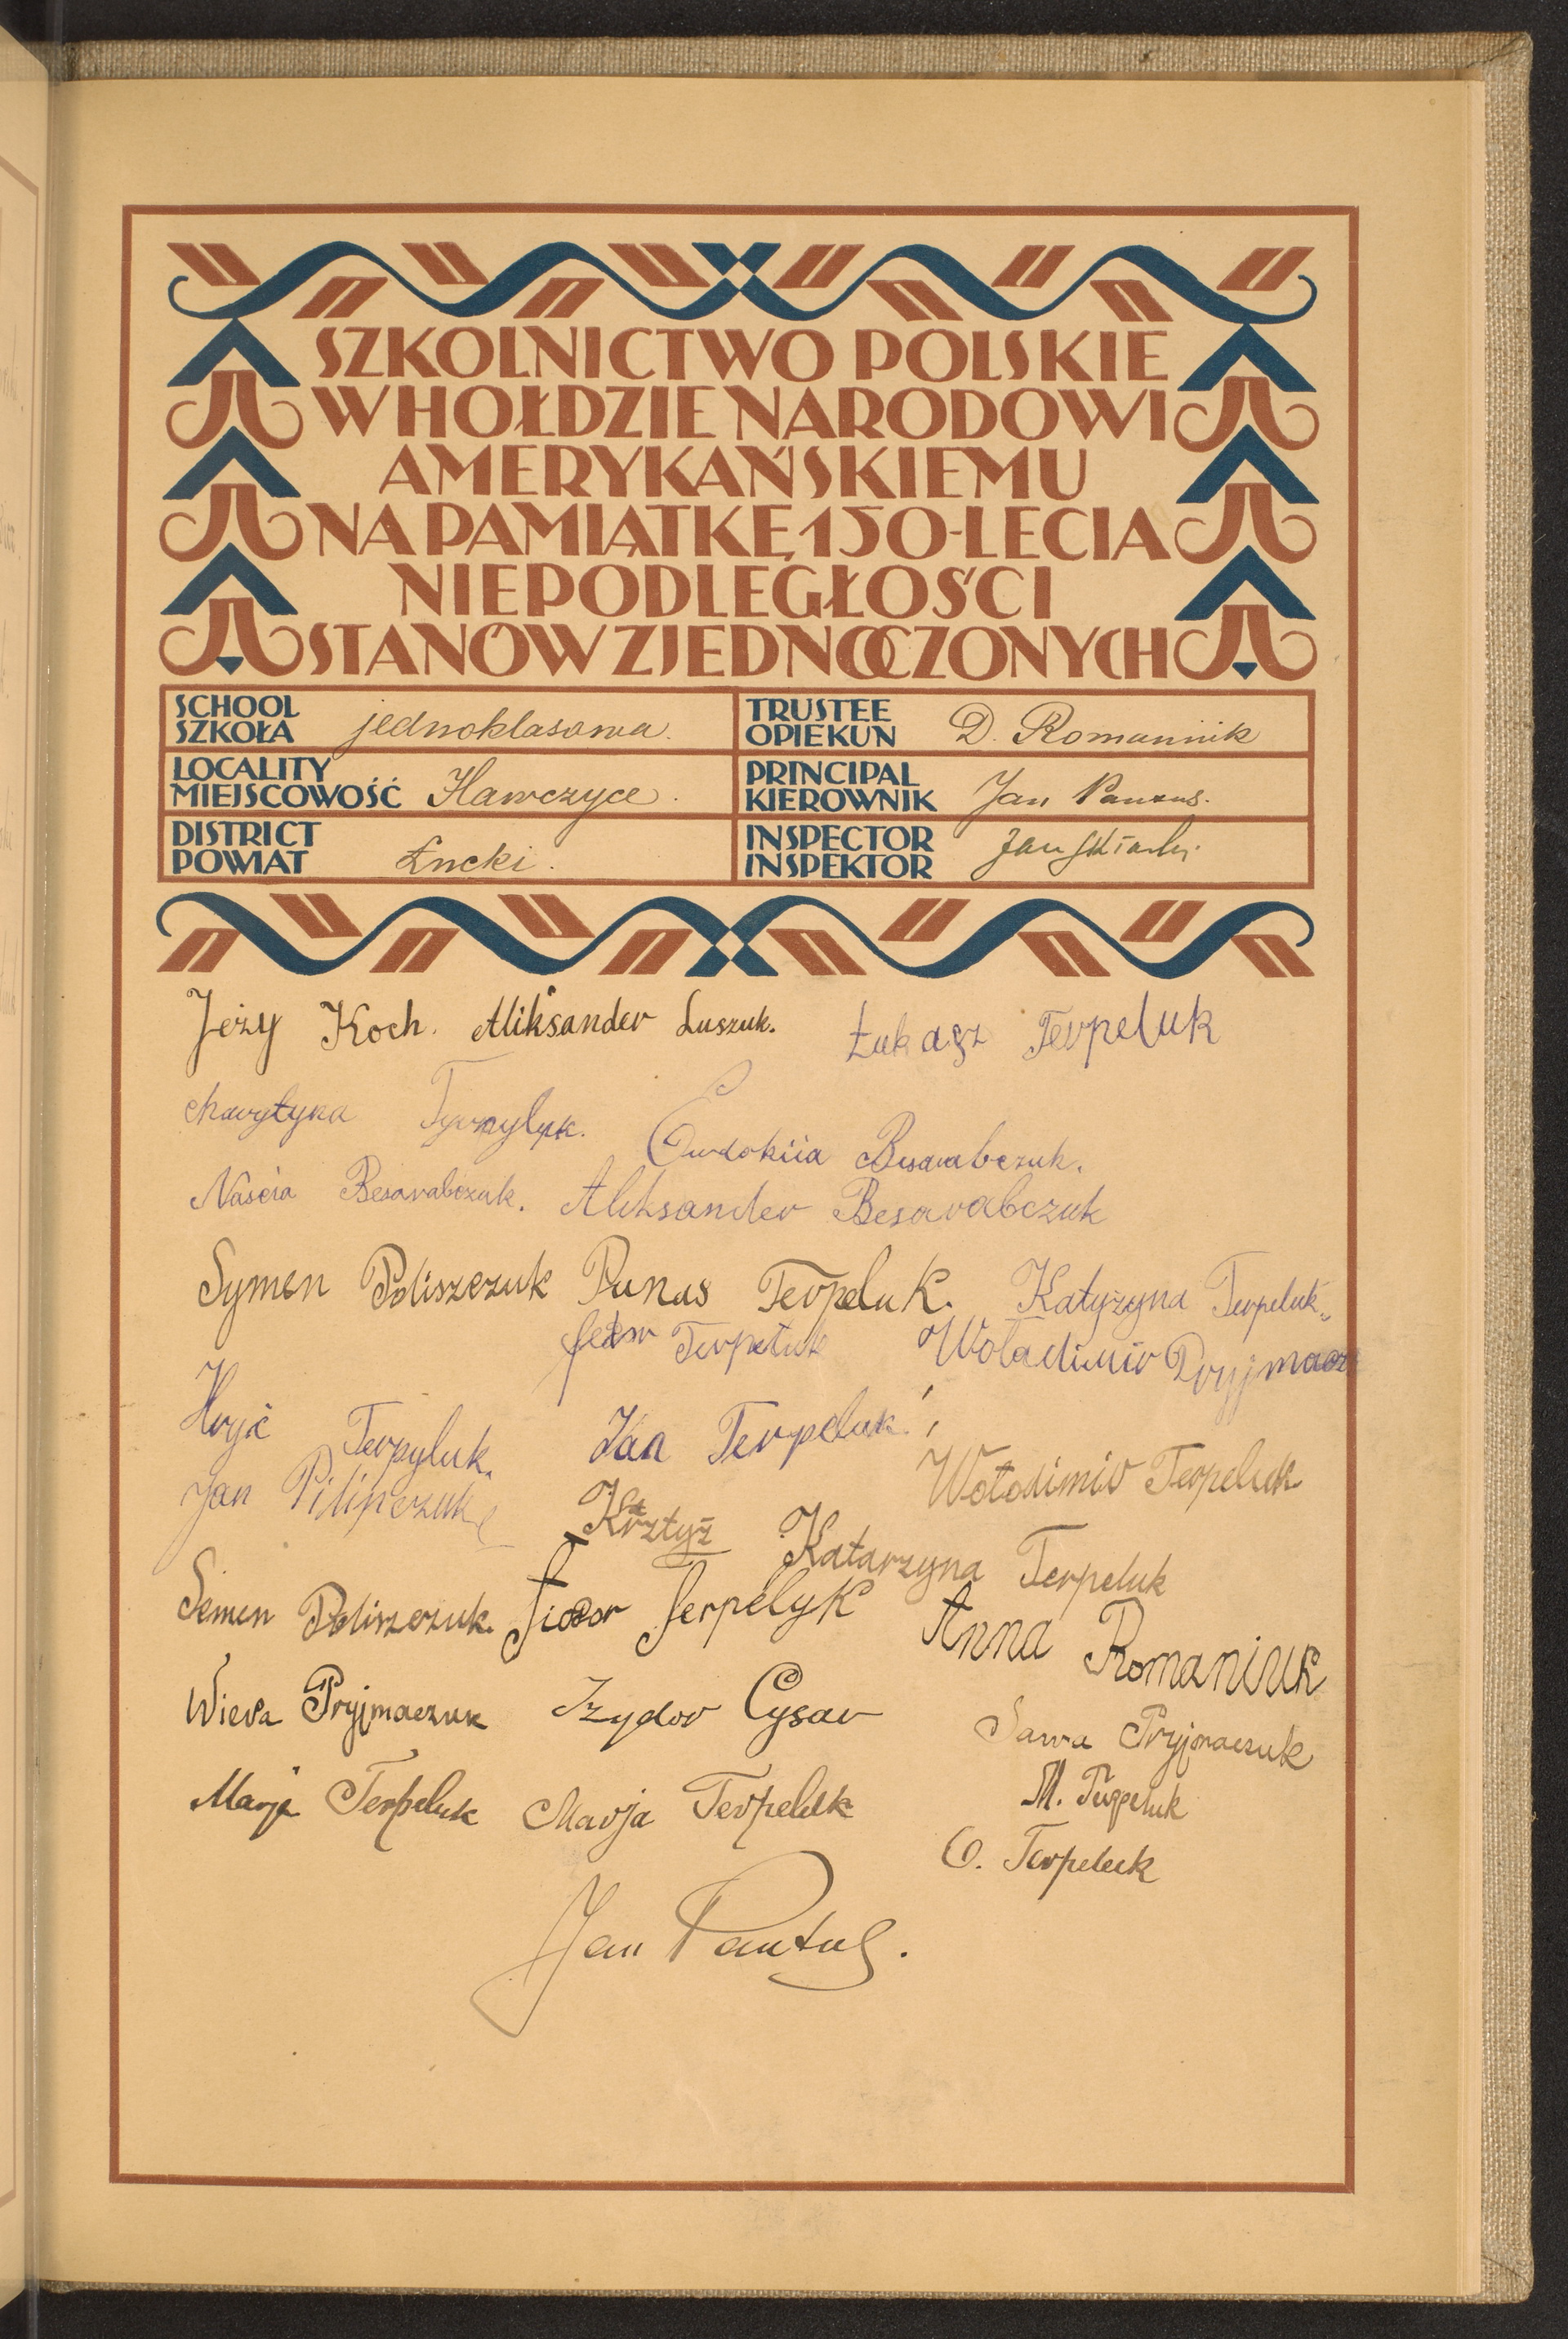 SZKOLNICTWO POLSKIE
W HOŁDZIE NARODOWI
AMERYKAŃSKIEMU
NA PAMIĄTKĘ 150-LECIA
NIEPODLEGŁOŚCI
STANÓW ZJEDNOCZONYCH
SCHOOL SZKOŁA jednoklasowa.
TRUSTEE OPIEKUN D. Romaniuk
LOCALITY MIEJSCOWOŚĆ Hawczyce.
PRINCIPAL KIEROWNIK Jan
DISTRICT POWIAT Łucki.
INSPECTOR INSPEKTOR Jan
Jeży Koch. Aliksander Łuszuk. Łukasz Terpeluk
Ewdokiia Besarabczuk.
Naścia Besarabczuk. Aleksander Besarabczuk
Symen Poliszczuk Panas Terpeluk. Katyzyna Terpeluk.
Terpeluk Woladimir Pryjmacz
Hryć Terpyluk. Jan Terpeluk.
Jan Pilipczuk Wołodimir Terpeluk
Katarzyna Terpeluk
Semen Poliszczuk. Fiodor Terpelyk Anna Romaniuk
Wiera Pryjmaczuk Izydor Cysar Sawa Pryjmaczuk
Marja Terpeluk Marja Terpeluk M. Terpeluk
O. Terpeluk
Jan Pantus.